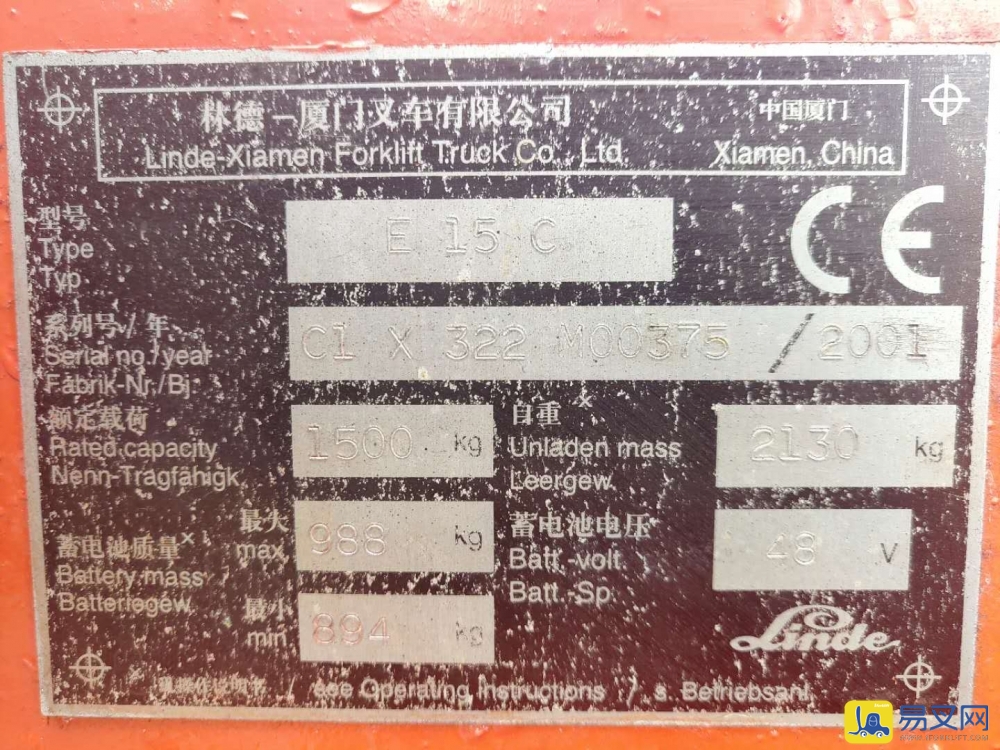 林德-厦门叉车有限公司 中国厦门
Linde-Xiamen Forklift Truck Co., Ltd. Xiamen, China
型号
Type E 15 C CE
Typ
系列号/年
Serial no./year C1 X 322 M00375 / 2001
Fabrik-Nr./Bj.
额定载荷 自重 ×
Rated capacity 1500 kg Unladen mass 2130 kg
Nenn-Tragfähigk. Leergew.
最大 蓄电池电压
max. 988 kg Batt.-volt 48 V
蓄电池质量 × Batt.-Sp.
Battery mass
Batteriegew. 最小
min. 894 kg
Linde
see Operating Instructions / s. Betriebsanl.
易叉网